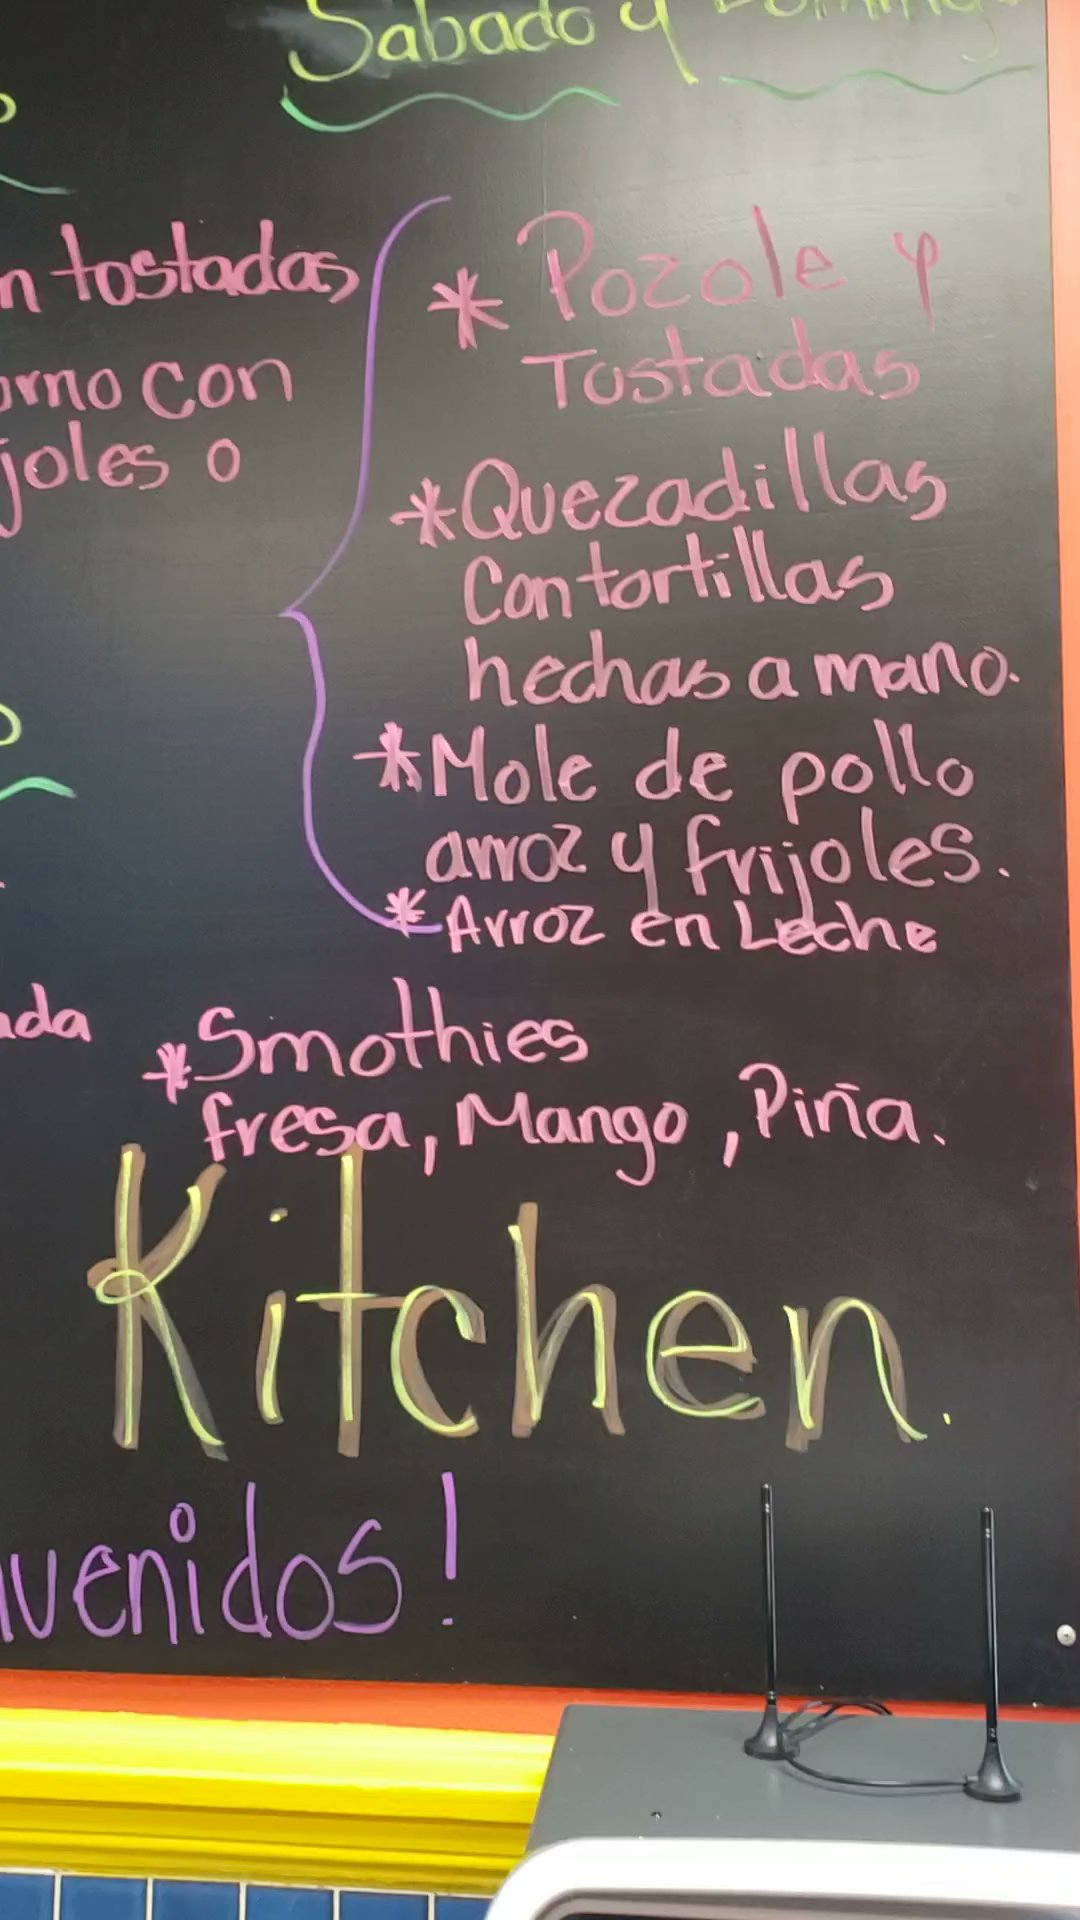 Sabado y Domingo
n tostadas
orno con
joles o
* Pozole y
Tostadas
*Quezadillas
Con tortillas
hechas a mano.
*Mole de pollo
arroz y frijoles.
*Arroz en Leche
ada
*Smothies
fresa, Mango, Piña.
Kitchen.
nvenidos!